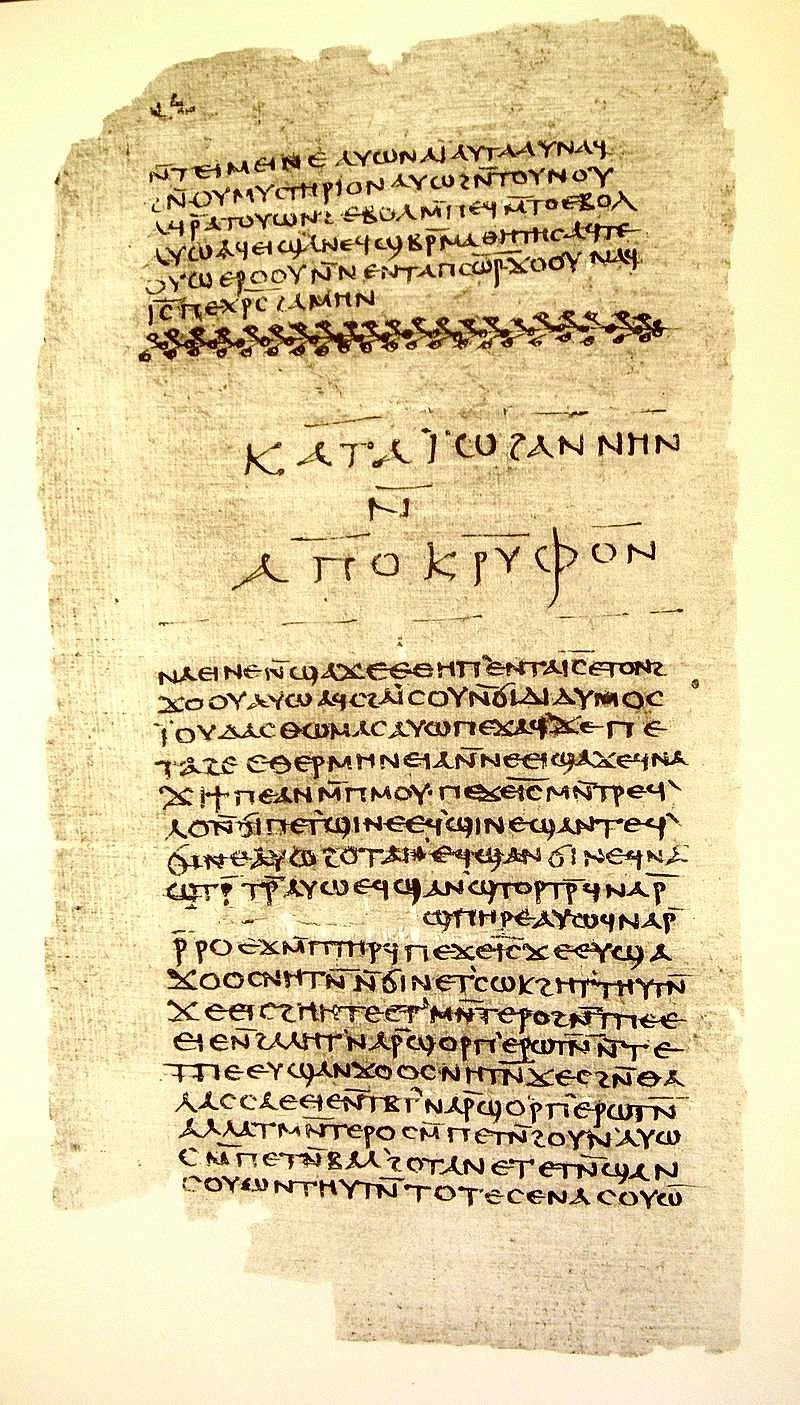 ⲛ̄ⲧⲉⲓⲙⲉⲓⲛⲉ ⲁⲩⲱ ⲛⲁⲓ̈ ⲁⲩⲧⲁⲁⲩ ⲛⲁϥ
ϩⲛ̄ⲟⲩⲙⲩⲥⲧⲏⲣⲓⲟⲛ ⲁⲩⲱ ϩⲛ̄ⲧⲟⲩⲛⲟⲩ
ⲁϥⲣ̄ⲁⲧⲟⲩⲱⲛϩ ⲉⲃⲟⲗ ⲙ̄ⲡⲉϥⲙ̄ⲧⲟ ⲉⲃⲟⲗ
ⲁⲩⲱ ⲁϥⲉⲓ ϣⲁⲛⲉϥϣⲃⲣ̄ⲙⲁⲑⲏⲧⲏⲥ ⲁϥⲧⲉ
ⲟⲩⲱ ⲉⲣⲟⲟⲩ ⲛ̄ⲛⲉⲛⲧⲁⲡⲥⲱ̄ⲣ ϫⲟⲟⲩ ⲛⲁϥ
ⲓ̄ⲥ̄ ⲡⲉⲭ̄ⲣ̄ⲥ̄ ϩⲁⲙⲏⲛ
ⲕⲁⲧⲁ ⲓ̈ⲱϩⲁⲛⲛⲏⲛ
ⲛ̄
ⲁⲡⲟⲕⲣⲩⲫⲟⲛ
ⲛⲁⲉⲓ ⲛⲉ ⲛ̄ϣⲁϫⲉ ⲉⲑⲏⲡ ⲉⲛⲧⲁⲓ̄ⲥ̄ ⲉⲧⲟⲛϩ
ϫⲟⲟⲩ ⲁⲩⲱ ⲁϥⲥϩⲁⲓ̈ⲥⲟⲩ ⲛ̄ϭⲓ ⲇⲓⲇⲩⲙⲟⲥ
ⲓ̈ⲟⲩⲇⲁⲥ ⲑⲱⲙⲁⲥ ⲁⲩⲱ ⲡⲉϫⲁϥ ϫⲉ ⲡⲉ
ⲧⲁϩⲉ ⲉⲑⲉⲣⲙⲏⲛⲉⲓⲁ ⲛ̄ⲛⲉⲉⲓϣⲁϫⲉ ϥⲛⲁ
ϫⲓ ϯⲡⲉ ⲁⲛ ⲙ̄ⲡⲙⲟⲩ· ⲡⲉϫⲉ ⲓ̄ⲥ̄ ⲙⲛ̄ⲧⲣⲉϥ
ⲗⲟ ⲛ̄ϭⲓ ⲡⲉⲧϣⲓⲛⲉ ⲉϥϣⲓⲛⲉ ϣⲁⲛⲧⲉϥ
ϭⲓⲛⲉ ⲁⲩⲱ ϩⲟⲧⲁⲛ ⲉϥϣⲁⲛϭⲓⲛⲉ ϥⲛⲁ
ϣⲧⲣ̄ⲧⲣ̄ ⲁⲩⲱ ⲉϥϣⲁⲛϣⲧⲟⲣⲧⲣ̄ ϥⲛⲁⲣ̄
ϣⲡⲏⲣⲉ ⲁⲩⲱ ϥⲛⲁⲣ̄
ⲣ̄ⲣⲟ ⲉϫⲙ̄ⲡⲧⲏⲣϥ ⲡⲉϫⲉ ⲓ̄ⲥ̄ ϫⲉ ⲉⲩϣⲁ
ϫⲟⲟⲥ ⲛⲏⲧⲛ̄ ⲛ̄ϭⲓ ⲛⲉⲧ’ⲥⲱⲕ ϩⲏⲧ’ⲧⲏⲩⲧⲛ̄
ϫⲉ ⲉⲓⲥϩⲏⲏⲧⲉ ⲉⲧ’ⲙⲛ̄ⲧⲉⲣⲟ ϩⲛ̄ⲧⲡⲉ ⲉ
ⲉⲓⲉ ⲛ̄ϩⲁⲗⲏⲧ’ ⲛⲁⲣ̄ϣⲟⲣⲡ’ ⲉⲣⲱⲧⲛ̄ ⲛ̄ⲧⲉ
ⲧⲡⲉ ⲉⲩϣⲁⲛϫⲟⲟⲥ ⲛⲏⲧⲛ̄ ϫⲉ ⲥϩⲛ̄ⲑⲁ
ⲗⲁⲥⲥⲁ ⲉⲉⲓⲉ ⲛ̄ⲧⲃⲧ’ ⲛⲁⲣ̄ϣⲟⲣⲡ’ ⲉⲣⲱⲧⲛ̄
ⲁⲗⲗⲁ ⲧⲙⲛ̄ⲧⲉⲣⲟ ⲥⲙ̄ⲡⲉⲧⲛ̄ϩⲟⲩⲛ’ ⲁⲩⲱ
ⲥⲙ̄ⲡⲉⲧⲛ̄ⲃⲁⲗ’ ϩⲟⲧⲁⲛ ⲉⲧⲉⲧⲛ̄ϣⲁⲛ
ⲥⲟⲩⲱⲛ ⲧⲏⲩⲧⲛ̄ ⲧⲟⲧⲉ ⲥⲉⲛⲁⲥⲟⲩⲱ̄